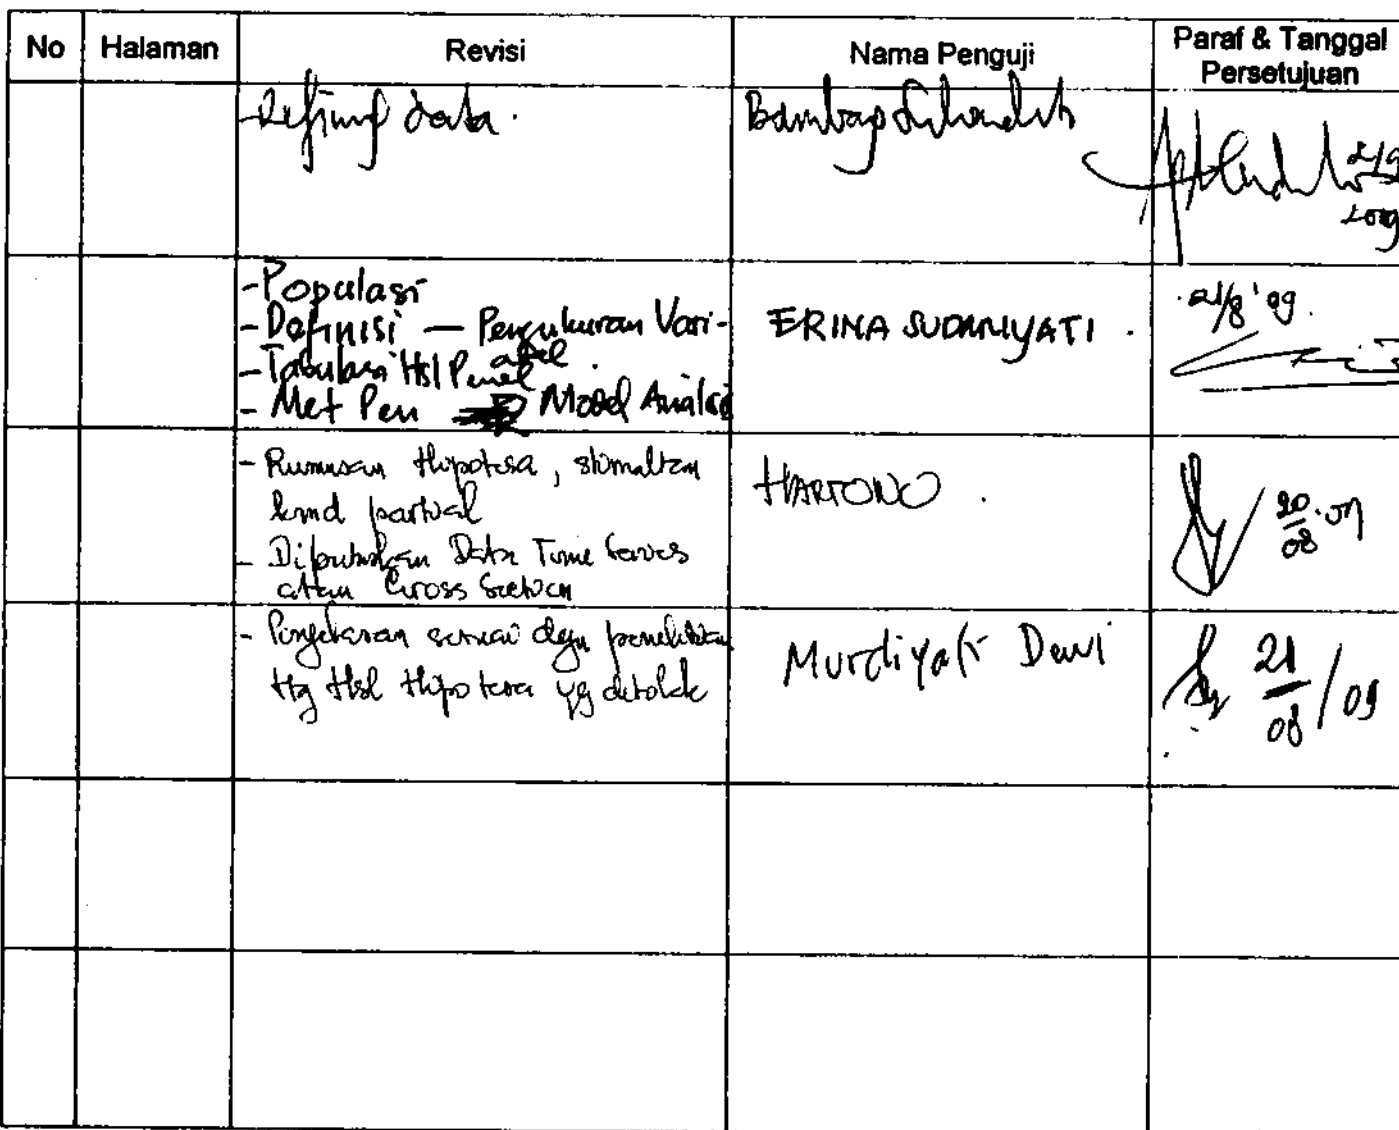 No Halaman Revisi Nama Penguji Paraf & Tanggal
Persetujuan
data.
- Populasi
- Definisi — Pengukuran Vari-
abel
- Tabulasi Hsl Penel
- Met Pen Model Analisis
ERINA SUDARIYATI .
21/8 '09.
- Rumusan Hipotesa, simultan
kmd partial
- Data Time Series
atau Cross Section
HARTONO .
20/08.09
- sesuai dgn penelitian
ttg Hsl Hipotesa yg ditolak
Murdiyati Dewi
21/08/09